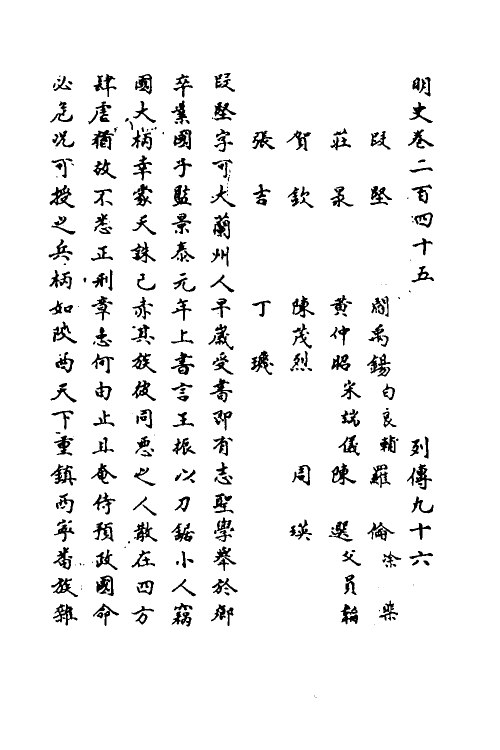 明史卷二百四十五　列傳九十六
段堅　閻禹錫　白良輔　羅倫　涂棐
莊㫤　黄仲昭　宋端儀　陳選　父員韜
賀欽　陳茂烈　周瑛
張吉　丁璣
段堅字可大蘭州人早歲受書即有志聖學舉於鄉
卒業國子監景泰元年上書言王振以刀鋸小人竊
國大柄幸蒙天誅已赤其族彼同惡之人散在四方
肆虐猶故不悉正刑章志何由止且奄侍預政國命
必危况可授之兵柄如陝西天下重鎮西寧番族雜